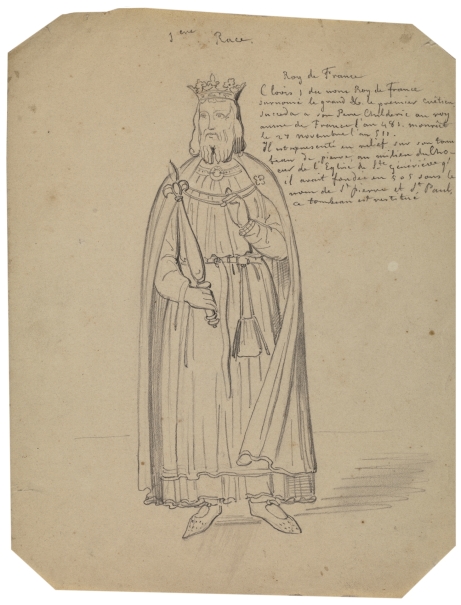 1ere Race.
Roy de France
Clovis 1 du nom Roy de France
surnomé le grand & le premier crétien
succeda a son Pere Childeric au roy
aume de France l'an 481. mourut
le 27 novembre l'an 511.
Il est representé en relief sur son tom
beau de pierre, au milieu du Cho
eur de l'Eglise de Ste Genevieve qu'
il avoit fondée en 505 sous le
nom de St pierre et St Paul,
ce tombeau est